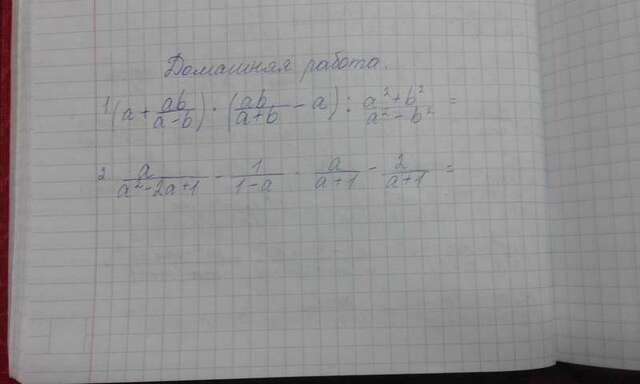 Домашняя работа.
1 (a + ab/(a-b)) · (ab/(a+b) - a) : (a²+b²)/(a²-b²) =
2. a/(a²-2a+1) - 1/(1-a) · a/(a+1) - 2/(a+1) =